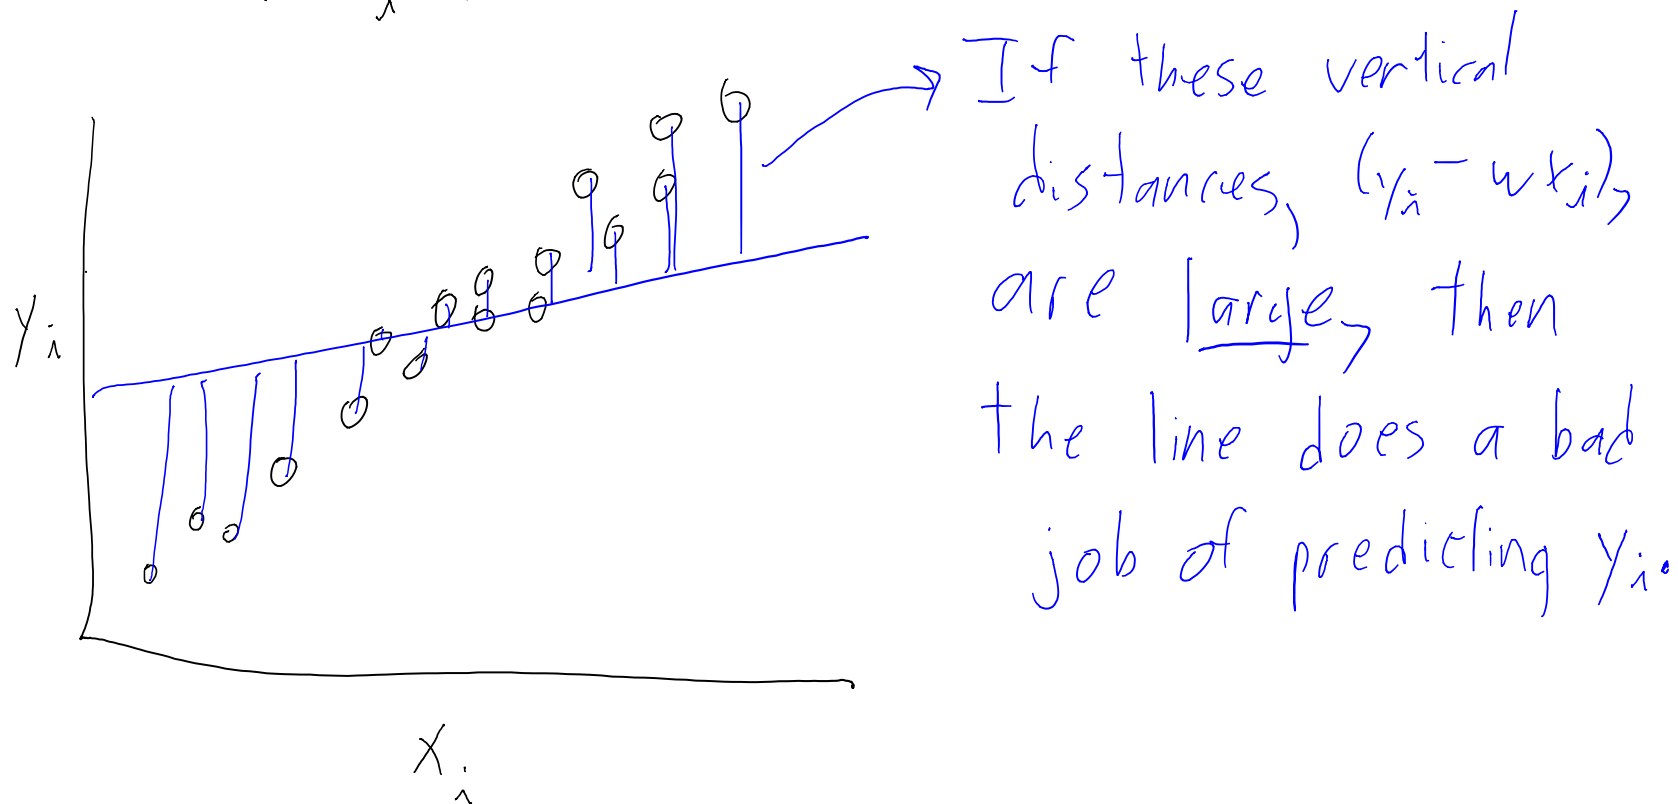 i
If these vertical
distances, (yi - wxi),
are large, then
the line does a bad
job of predicting yi.
yi
xi